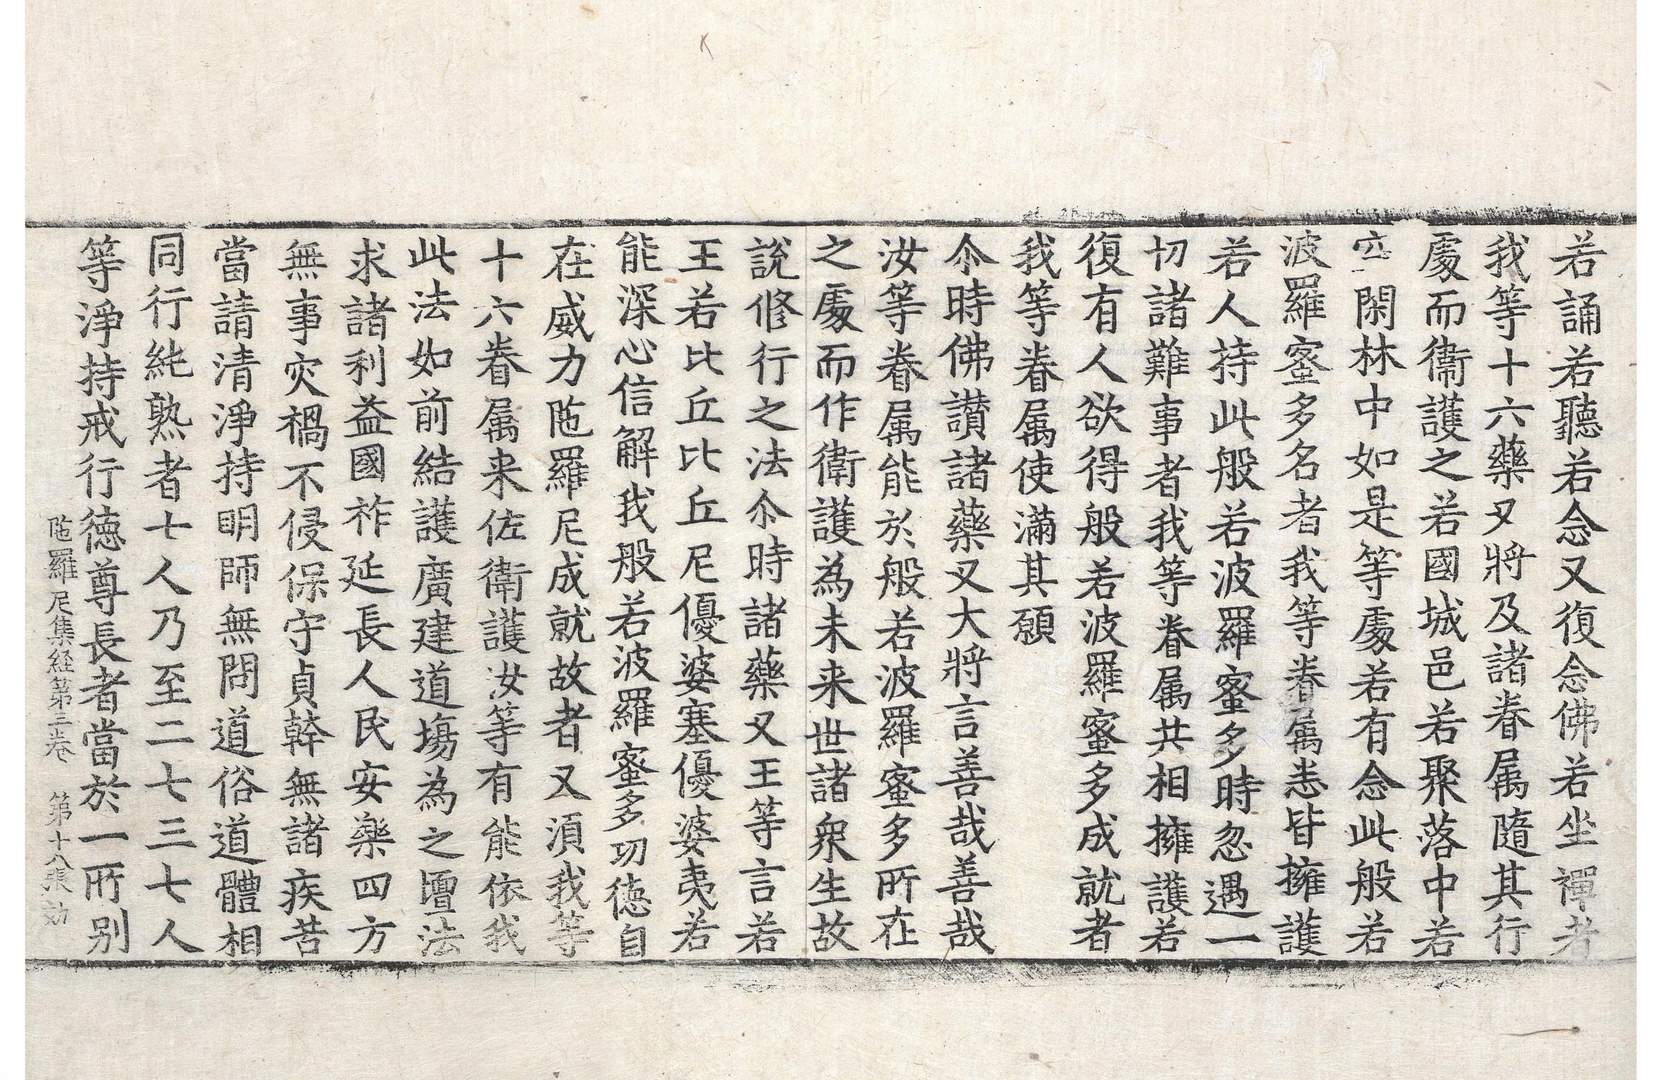 若誦若聽若念又復念佛若坐禪者
我等十六藥叉將及諸眷属隨其行
處而衞護之若國城邑若聚落中若
空閑林中如是等處若有念此般若
波羅蜜多名者我等眷属悉皆擁護
若人持此般若波羅蜜多時忽遇一
切諸難事者我等眷属共相擁護若
復有人欲得般若波羅蜜多成就者
我等眷属使滿其願
尒時佛讃諸藥叉大將言善哉善哉
汝等眷属能於般若波羅蜜多所在
之處而作衛護為未来世諸衆生故
說修行之法尒時諸藥叉王等言若
王若比丘比丘尼優婆塞優婆夷若
能深心信解我般若波羅蜜多功徳自
在威力陁羅尼成就故者又湏我等
十六眷属来佐衛護汝等有能依我
此法如前結護廣建道塲為之壇法
求諸利益國祚延長人民安樂四方
無事灾禍不侵保守貞幹無諸疾苦
當請清淨持明師無問道俗道體相
同行純熟者七人乃至二七三七人
等淨持戒行徳尊長者當於一所别
陁羅尼集経第三卷 第十八張 効